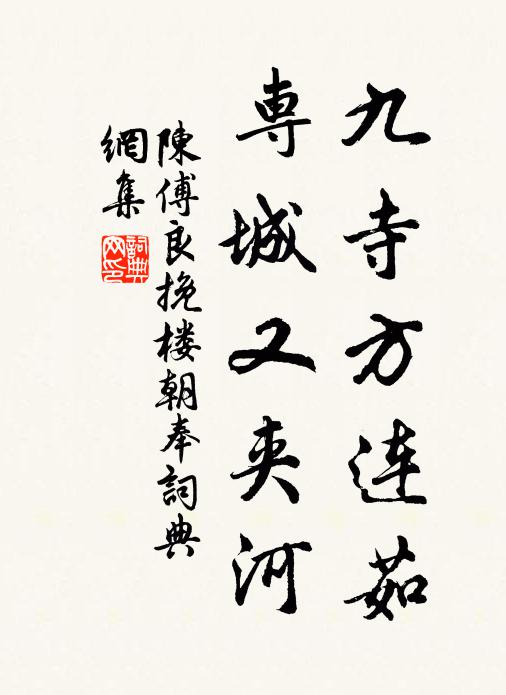 九寺方连茹
専城又夹河
陳傅良挽楼朝奉詞典
網集
詞典
网印